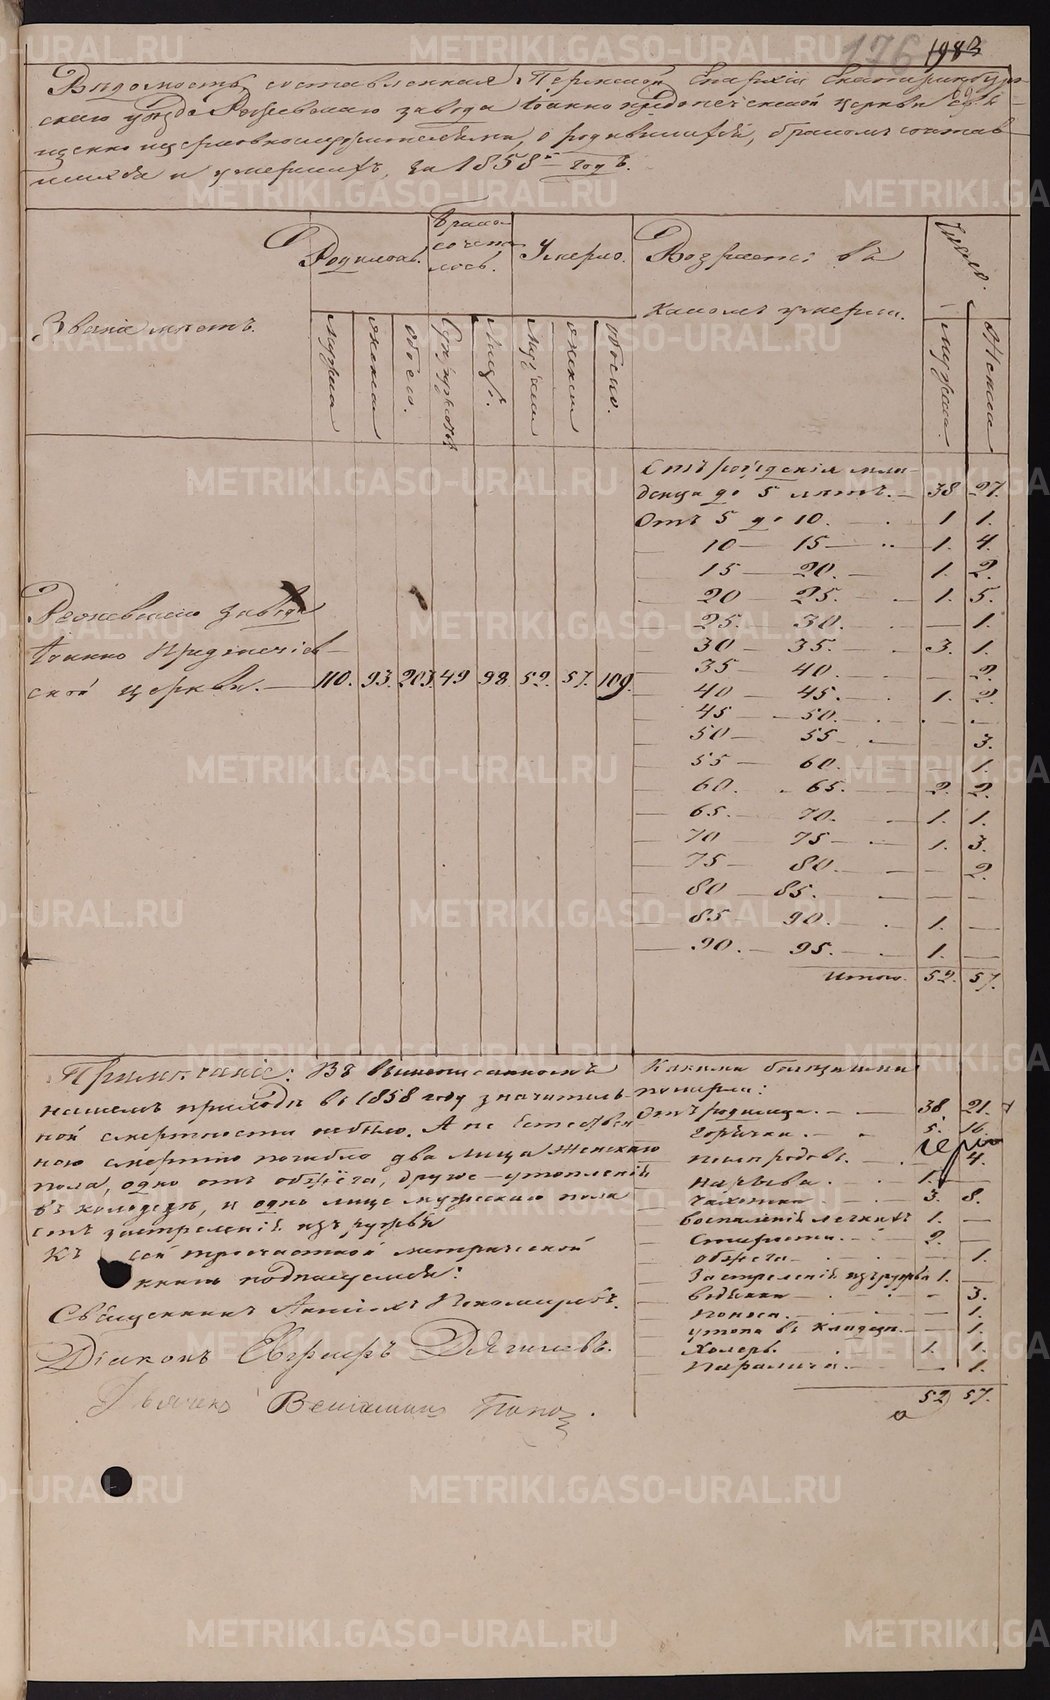 176 1983
Вѣдомость, составленная Пермской Епархіи Екатеринбург-
скаго уѣзда Режевскаго завода Іоанно предотеческой церкви свя-
щенно церковнослужителями, о родившихся, бракомъ сочетав-
шихся и умершихъ, за 1858й годъ.
Званіе мѣстъ.
Родилось.
Брако-
сочета-
лось.
Умерло.
Возрастъ въ
какомъ умерли.
Число.
мужска
женска
обоего.
Супружествъ
Лицъ.
мужска
женска
обоего.
мужска.
женска
Отъ рожденія мла-
денца до 5 лѣтъ. 38 27.
Отъ 5 до 10. 1 1.
10 — 15 — 1. 4.
15 — 20. — 1. 2.
20 — 25. — 1. 5.
25. 30. — 1.
30 — 35. — 3. 1.
35 — 40. — 2.
40 — 45. — 1. 2.
45 — 50. — —
50 — 55 — 3.
55 — 60. — 1.
60. — 65. — 2. 2.
65. — 70. — 1. 1.
70 — 75 — 1. 3.
75 — 80. — — 2.
80 — 85. — —
85 — 90. — 1. —
90. — 95. — 1. —
Итого. 52. 57.
Режевскаго завода
Іоанно Предтечев-
ской церкви. — 110. 93. 203. 49 98 52. 57. 109.
Примѣчаніе: Въ вышеписанномъ
нашемъ приходѣ въ 1858 году значитель-
ной смертности не было. А не Естествен
ною смертію погибло два лица Женскаго
пола, одно отъ обжега, другое — утопленіе
въ колодезѣ, и одно лице мужскаго пола
отъ застреленія изъ ружья
Къ сей троечастной метрической
книгѣ подписуемся:
Священникъ
Діаконъ Евграфъ Дягилевъ.
Дьячекъ Веніаминъ Попов.
Какими болѣзнями
померли:
Отъ родимца. — 38. 21.
горячки. — 5. 16.
4.
нарыва. — 1. —
чахотки — 3. 8.
воспаленія легкихъ 1. —
Старости. — 2. —
обжега — 1.
Застреленія изъ ружья 1. —
водянки — 3.
поноса. — 1.
утопа въ кладязи. — 1.
Холеры. 1. 1.
Паралича. — 1.
52 57.